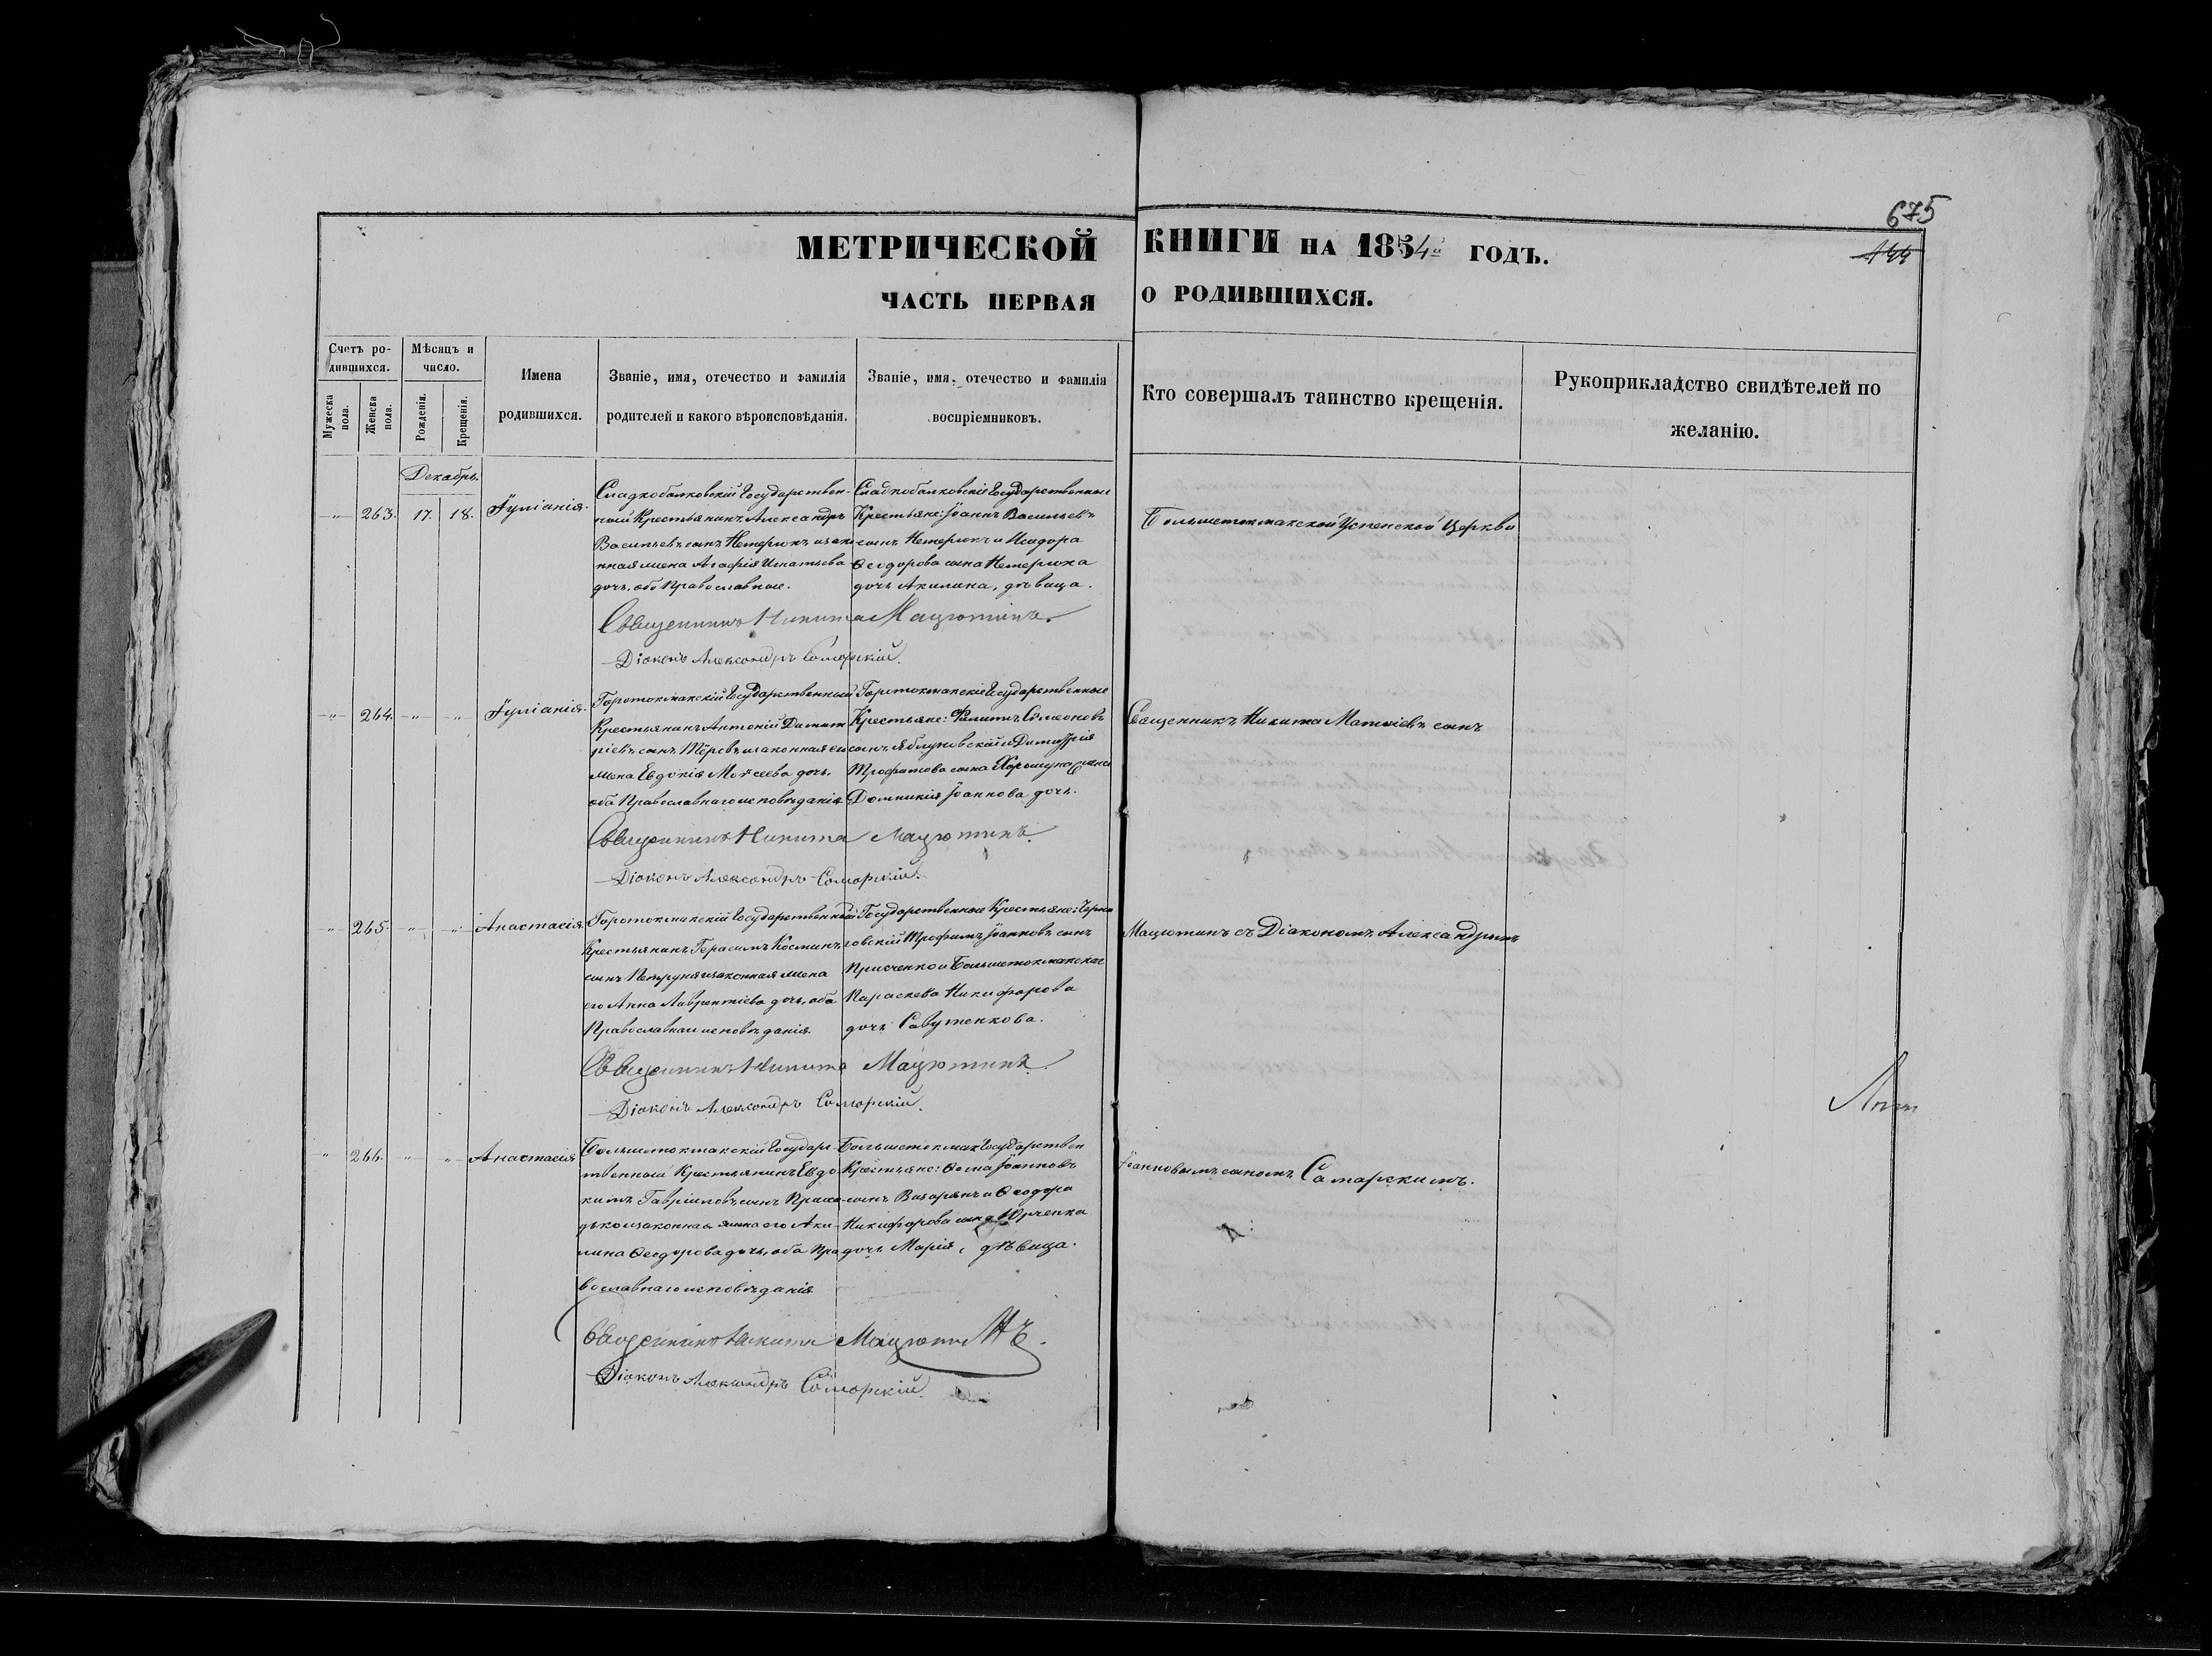 675
144
МЕТРИЧЕСКОЙ КНИГИ НА 1854й ГОДЪ.
ЧАСТЬ ПЕРВАЯ О РОДИВШИХСЯ.
Счетъ родившихся.
Мужеска пола.
Женска пола.
Мѣсяцъ и число.
Рожденія.
Крещенія.
Имена родившихся.
Званіе, имя, отечество и фамилія
родителей и какого вѣроисповѣданія.
Званіе, имя, отечество и фамилія
воспріемниковъ.
Кто совершалъ таинство крещенія.
Рукоприкладство свидѣтелей по
желанію.
Декабрь.
-"- 263. 17. 18. Іуліанія.
Сладкобалковскій Государствен-
ный Крестьянинъ Александръ
Васильевъ сынъ Нетерюкъ и зако-
нная жена Агафія Игнатьева
дочь, оба Православные.
Сладкобалковскіе Государственные
Крестьяне: Іоаннъ Васильевъ
сынъ Нетерюкъ и Исидора
Ѳеодорова сына Нетерюка
дочь Акилина, дѣвица.
Священникъ Никита Мацютинъ.
Діаконъ Александръ Самарскій.
-"- 264. -"- -"- Іуліанія.
Горотокмакскій Государственный
Крестьянинъ Антоній Димит
ріевъ сынъ и законная его
жена Евдокія Моѵсеева дочь,
оба Православнаго исповѣданія
Горотокмакскіе Государственные
Крестьяне: Филиппъ Сѵмеоновъ
сынъ Яблуновскій и Димитрія
Трофимова сына Хорошуна жена
Домникія Іоаннова дочь.
Священникъ Никита Мацютинъ.
Діаконъ Александръ Самарскій.
-"- 265. -"- -"- Анастасія.
Горотокмакскій Государственный
Крестьянинъ Герасимъ Косминъ
сынъ Петруня и законная жена
его Анна Лаврентіева дочь, оба
Православнаго исповѣданія.
Государственные Крестьяне: Черни
говскій Трофимъ Іоанновъ сынъ
и Большетокмакская
Параскева Никифорова
дочь Савутенкова.
Священникъ Никита Мацютинъ.
Діаконъ Александръ Самарскій.
-"- 266. -"- -"- Анастасія
Большетокмакскій Государ-
ственный Крестьянинъ Евдо
кимъ Гавріиловъ сынъ Прихо-
дько и законная жена его Аки-
лина Ѳеодорова дочь, оба Пра
вославнаго исповѣданія
Большетокмак Государствен
Крестьяне: Ѳома Іоанновъ
сынъ и Ѳеодора
Никифорова сына Юрченка
дочь Марія, дѣвица.
Священникъ Никита Мацютинъ.
Діаконъ Александръ Самарскій.
Большетокмакской Успенской Церкви
Священникъ Никита Матѳіевъ сынъ
Мацютинъ съ Діакономъ Александромъ
Іоанновымъ сыномъ Самарскимъ.